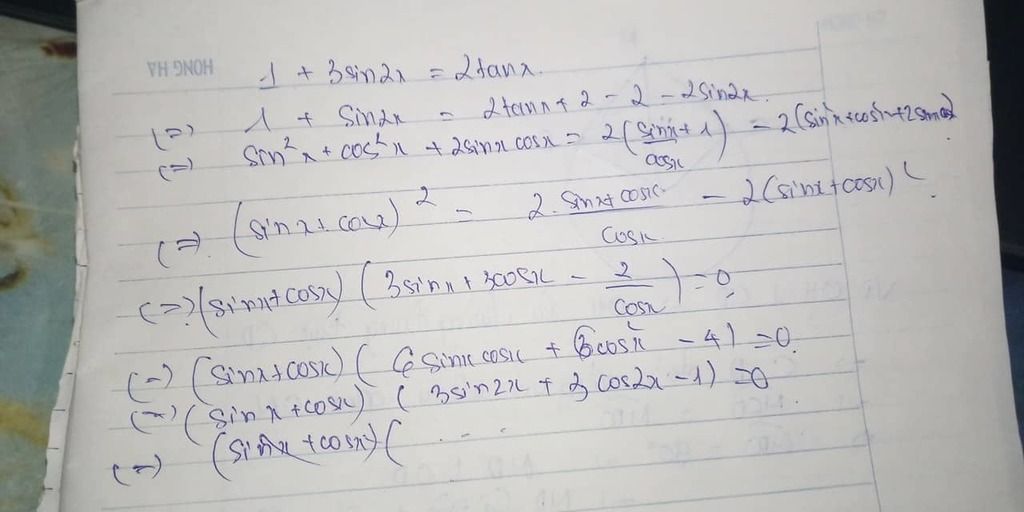 HONG HA
1 + 3sin2x = 2tanx.
(=) 1 + sin2x = 2tanx + 2 - 2 - 2sin2x.
(=) sin²x + cos²x + 2sinx cosx = 2(sinx/cosx + 1) - 2(sin²x + cos²x + 2sinx
(=) (sinx + cosx)² = 2. sinx + cosx/cosx - 2(sinx + cosx)²
(=) (sinx + cosx) (3sinx + 3cosx - 2/cosx) = 0
(=) (sinx + cosx) (6sinx cosx + 6cos²x - 4) = 0
(=) (sinx + cosx) (3sin2x + 3cos2x - 1) = 0
(=) (sinx + cosx)( . . . .